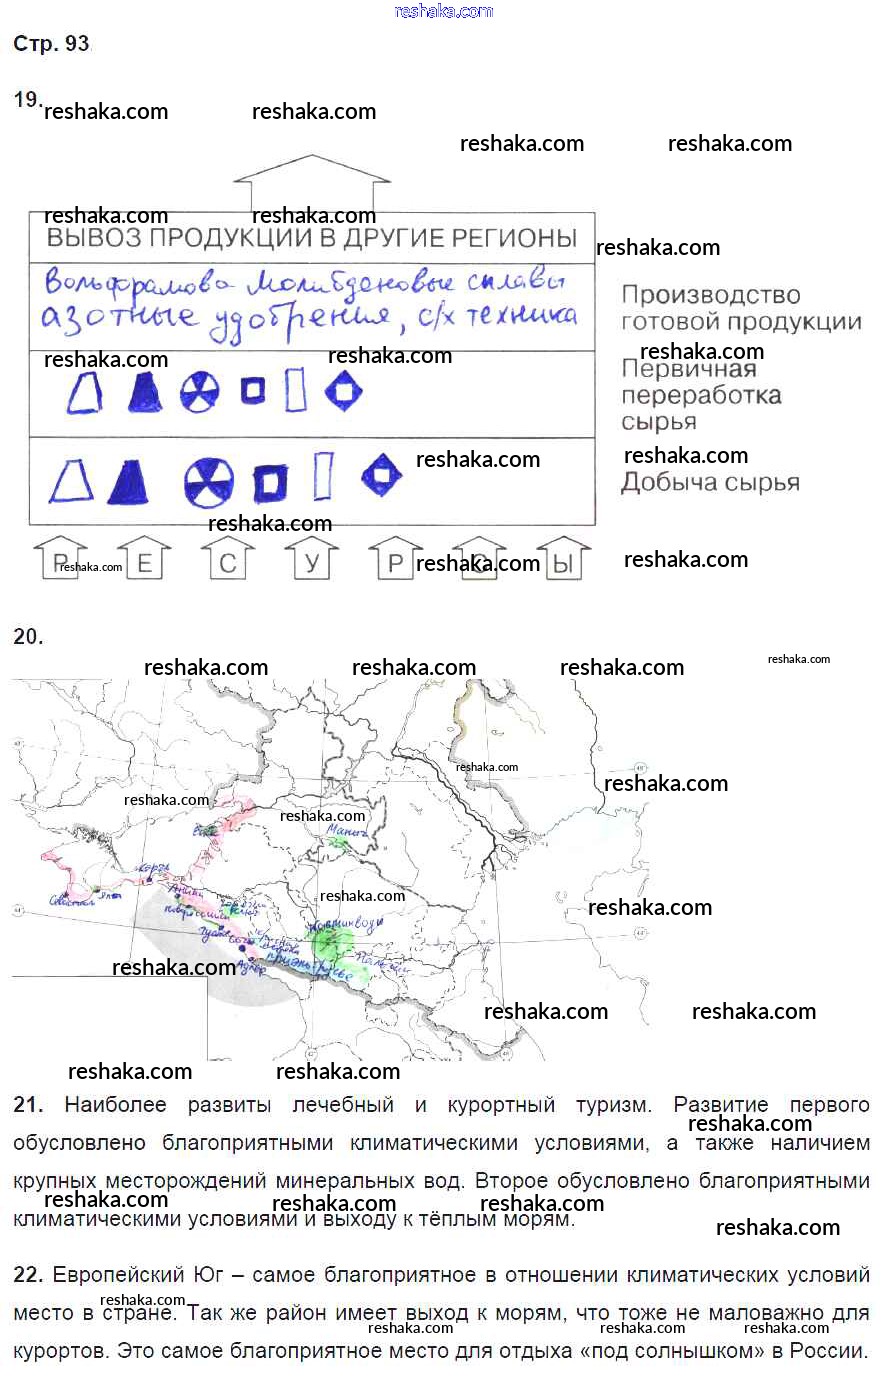 reshaka.com
Стр. 93
19.
reshaka.com reshaka.com
reshaka.com reshaka.com
reshaka.com reshaka.com
ВЫВОЗ ПРОДУКЦИИ В ДРУГИЕ РЕГИОНЫ
reshaka.com
Вольфрамово-молибденовые сплавы
азотные удобрения, с/х техника
Производство
готовой продукции
reshaka.com reshaka.com reshaka.com
Первичная
переработка
сырья
reshaka.com reshaka.com
Добыча сырья
reshaka.com
Р Е С У Р С Ы
reshaka.com reshaka.com reshaka.com
20.
reshaka.com reshaka.com reshaka.com reshaka.com
reshaka.com
reshaka.com
reshaka.com
reshaka.com
Маныч
Керчь
reshaka.com
Севастополь Ялта Анапа
reshaka.com
Новороссийск
Туапсе
Адлер
reshaka.com
reshaka.com reshaka.com
reshaka.com reshaka.com
21. Наиболее развиты лечебный и курортный туризм. Развитие первого
reshaka.com
обусловлено благоприятными климатическими условиями, а также наличием
крупных месторождений минеральных вод. Второе обусловлено благоприятными
reshaka.com reshaka.com reshaka.com
климатическими условиями и выходу к тёплым морям.
reshaka.com
22. Европейский Юг – самое благоприятное в отношении климатических условий
reshaka.com
место в стране. Так же район имеет выход к морям, что тоже не маловажно для
reshaka.com reshaka.com
курортов. Это самое благоприятное место для отдыха «под солнышком» в России.